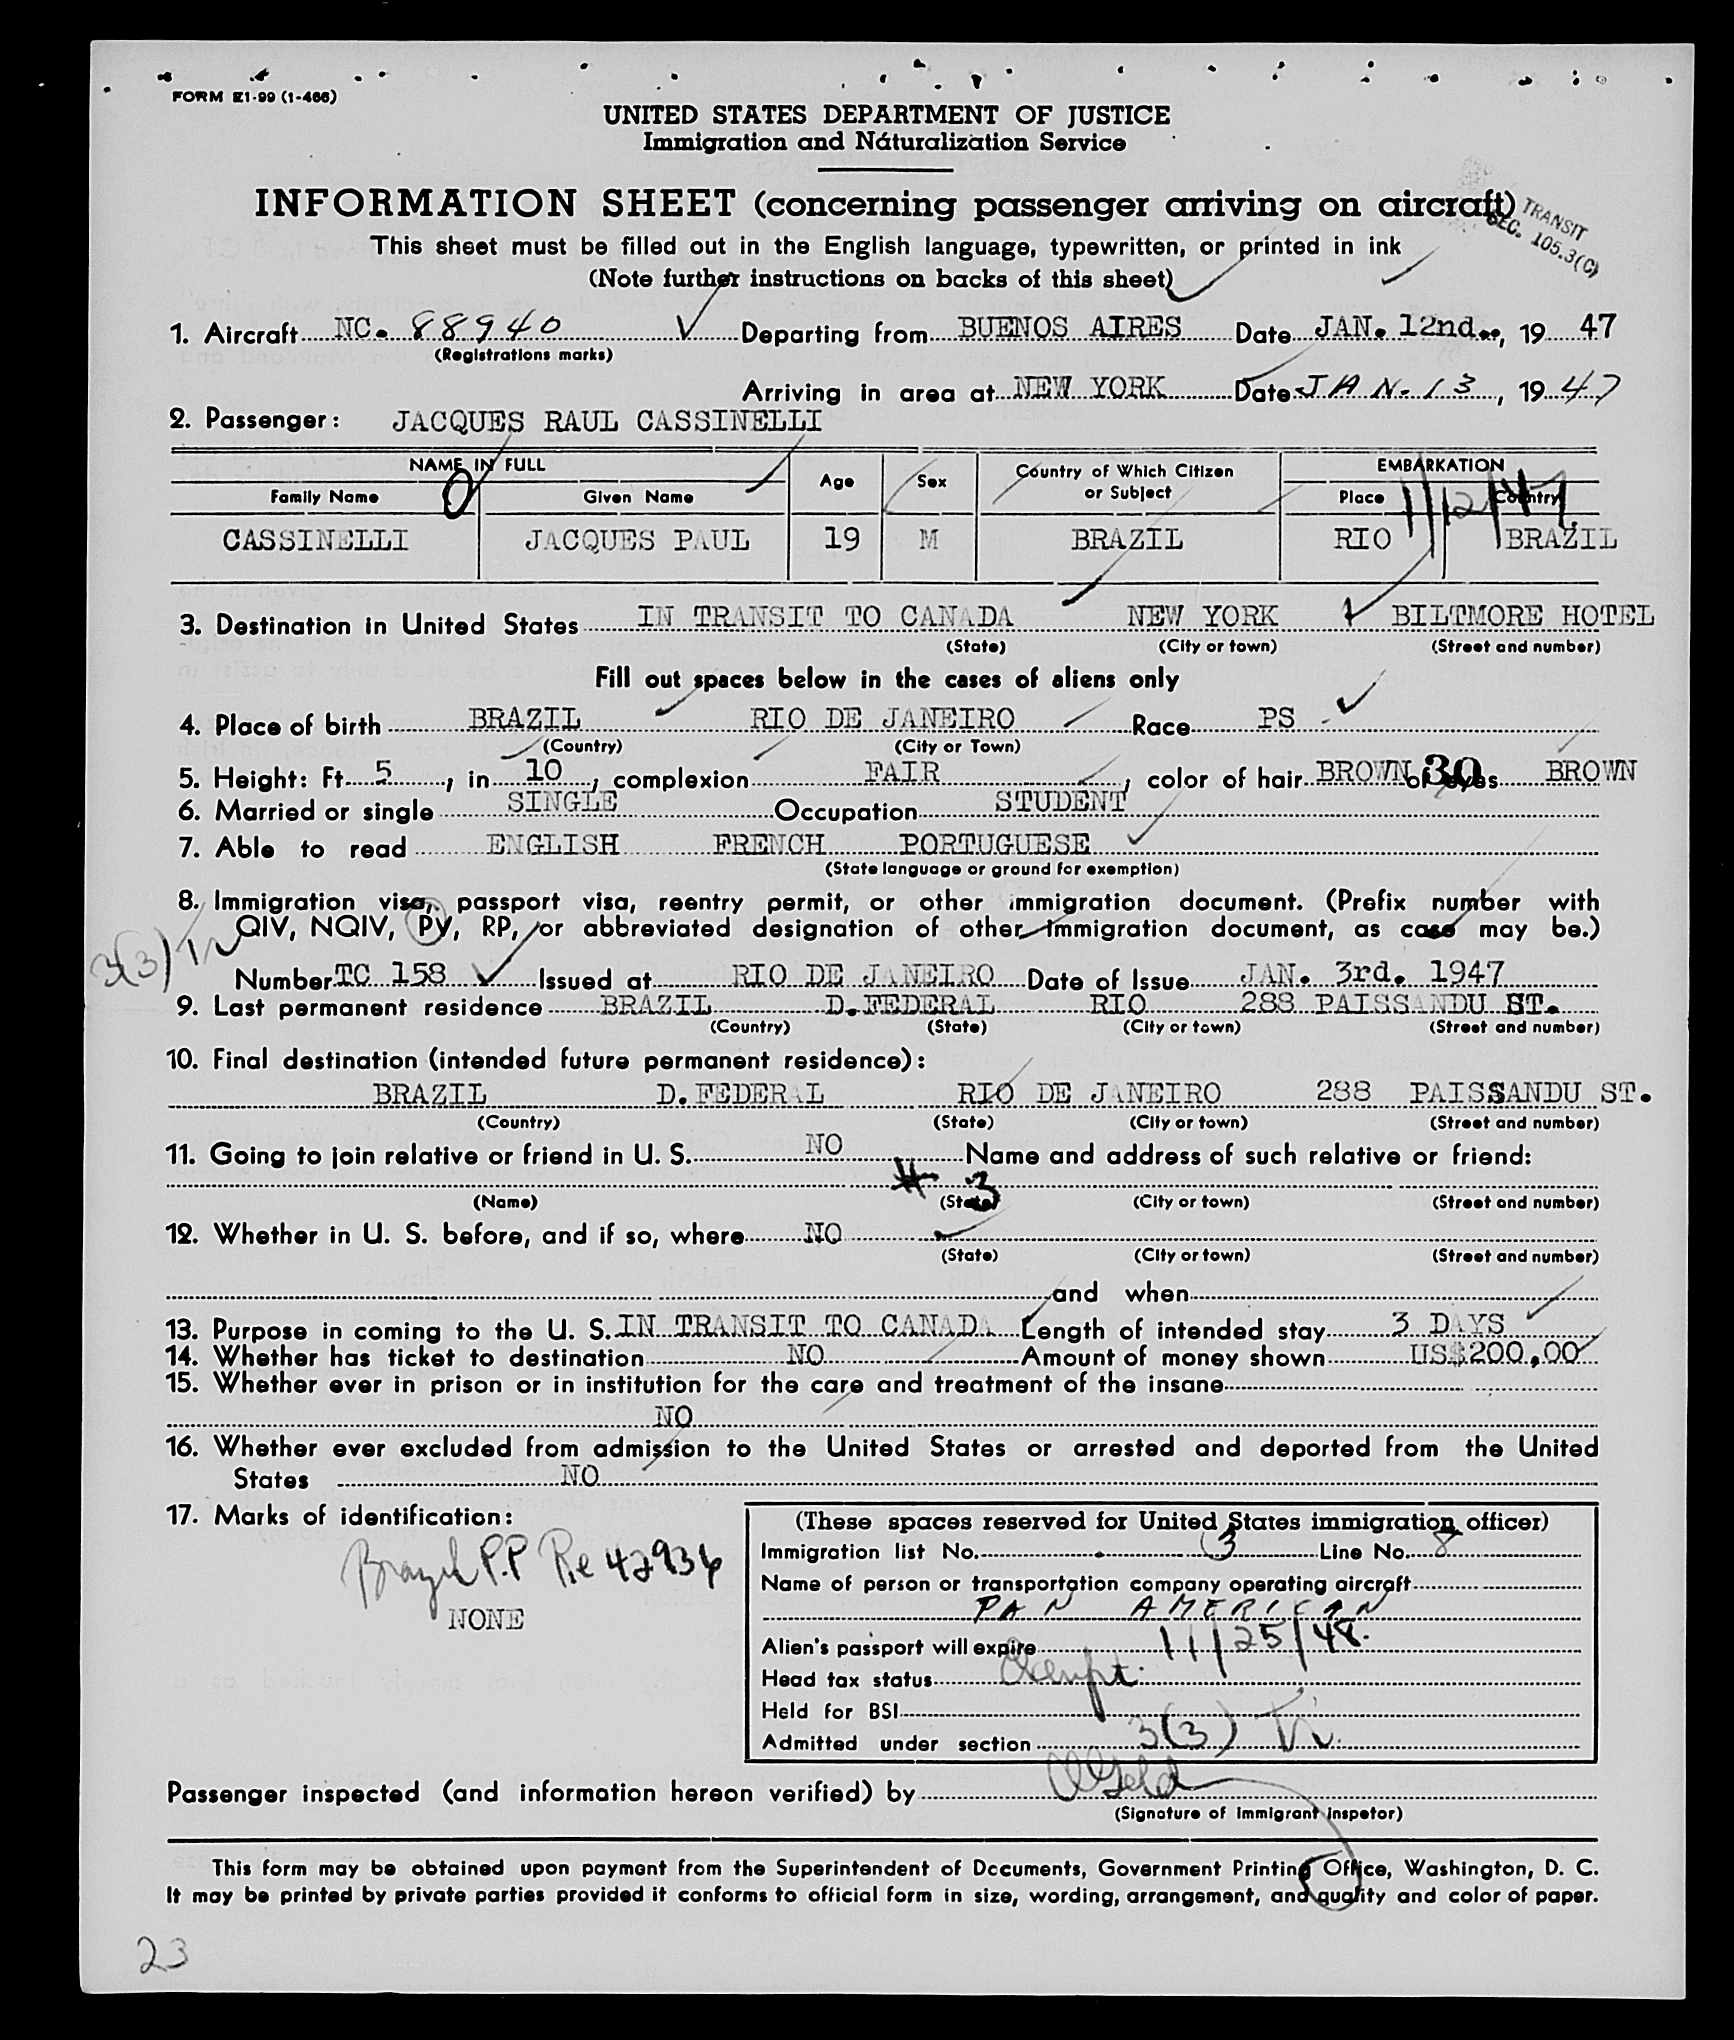 FORM I-99 (1-466)
UNITED STATES DEPARTMENT OF JUSTICE
Immigration and Naturalization Service
INFORMATION SHEET (concerning passenger arriving on aircraft)
TRANSIT
SEC. 105.3(C)
This sheet must be filled out in the English language, typewritten, or printed in ink
(Note further instructions on backs of this sheet)
1. Aircraft NC. 88940 Departing from BUENOS AIRES Date JAN. 12nd., 1947
(Registrations marks)
Arriving in area at NEW YORK Date JAN. 13, 1947
2. Passenger: JACQUES RAUL CASSINELLI
NAME IN FULL Age Sex Country of Which Citizen or Subject EMBARKATION
Family Name 0 Given Name Place Country
1/12/47
CASSINELLI JACQUES PAUL 19 M BRAZIL RIO BRAZIL
3. Destination in United States IN TRANSIT TO CANADA NEW YORK BILTMORE HOTEL
(State) (City or town) (Street and number)
Fill out spaces below in the cases of aliens only
4. Place of birth BRAZIL RIO DE JANEIRO Race PS
(Country) (City or Town)
5. Height: Ft. 5, in 10, complexion FAIR, color of hair BROWN of eyes BROWN
30
6. Married or single SINGLE Occupation STUDENT
7. Able to read ENGLISH FRENCH PORTUGUESE
(State language or ground for exemption)
8. Immigration visa, passport visa, reentry permit, or other immigration document. (Prefix number with
QIV, NQIV, PV, RP, or abbreviated designation of other immigration document, as case may be.)
3(3) Tr
Number TC 158 Issued at RIO DE JANEIRO Date of Issue JAN. 3rd. 1947
9. Last permanent residence BRAZIL D.FEDERAL RIO 288 PAISSANDU ST.
(Country) (State) (City or town) (Street and number)
10. Final destination (intended future permanent residence):
BRAZIL D.FEDERAL RIO DE JANEIRO 288 PAISSANDU ST.
(Country) (State) (City or town) (Street and number)
11. Going to join relative or friend in U. S. NO Name and address of such relative or friend:
# 3
(Name) (State) (City or town) (Street and number)
12. Whether in U. S. before, and if so, where NO
(State) (City or town) (Street and number)
and when
13. Purpose in coming to the U. S. IN TRANSIT TO CANADA Length of intended stay 3 DAYS
14. Whether has ticket to destination NO Amount of money shown US$200,00
15. Whether ever in prison or in institution for the care and treatment of the insane
NO
16. Whether ever excluded from admission to the United States or arrested and deported from the United
States NO
17. Marks of identification:
Brazil P.P Re 42936
NONE
(These spaces reserved for United States immigration officer)
Immigration list No. 3 Line No. 8
Name of person or transportation company operating aircraft
PAN AMERICAN
Alien's passport will expire 11/25/48.
Head tax status Exempt.
Held for BSI
Admitted under section 3(3) Tr.
Passenger inspected (and information hereon verified) by
(Signature of Immigrant Inspetor)
This form may be obtained upon payment from the Superintendent of Documents, Government Printing Office, Washington, D. C.
It may be printed by private parties provided it conforms to official form in size, wording, arrangement, and quality and color of paper.
23